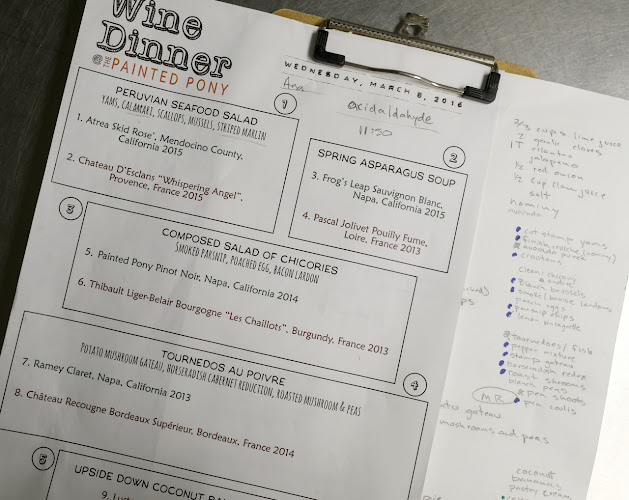 Wine
Dinner
@ THE PAINTED PONY
WEDNESDAY, MARCH 8, 2016
Ana
acidaldahyde
11:50
1
PERUVIAN SEAFOOD SALAD
YAMS, CALAMARI, SCALLOPS, MUSSELS, STRIPED MARLIN
1. Atrea Skid Rose', Mendocino County,
California 2015
2. Chateau D'Esclans "Whispering Angel",
Provence, France 2015
2
SPRING ASPARAGUS SOUP
3. Frog's Leap Sauvignon Blanc,
Napa, California 2015
4. Pascal Jolivet Pouilly Fume,
Loire, France 2013
3
COMPOSED SALAD OF CHICORIES
SMOKED PARSNIP, POACHED EGG, BACON LARDON
5. Painted Pony Pinot Noir, Napa, California 2014
6. Thibault Liger-Belair Bourgogne "Les Chaillots", Burgundy, France 2013
4
TOURNEDOS AU POIVRE
POTATO MUSHROOM GATEAU, HORSERADISH CABERNET REDUCTION, ROASTED MUSHROOM & PEAS
7. Ramey Claret, Napa, California 2013
8. Château Recougne Bordeaux Supérieur, Bordeaux, France 2014
5
UPSIDE DOWN COCONUT
9.
2/3 cups lime juice
2 garlic cloves
1T cilantro
jalapeno
1/2 red onion
1/2 cup clam juice
salt
hominy
avocado
cut stamp yams
croutons
blanch brussels
poach eggs
parsnip chips
lemon vinaigrette
tournedos / fish
pepper mixture
stamp gateau
horseradish redux
roast shrooms
blanch peas
pea shoots
MR
pea coulis
gateau
mushrooms and peas
coconut
bananas
pastry cream